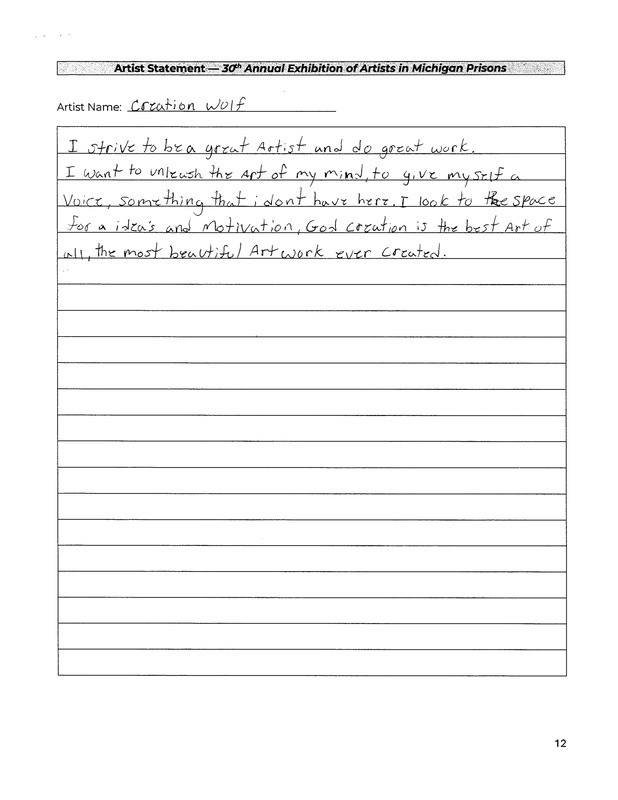 Artist Statement — 30th Annual Exhibition of Artists in Michigan Prisons
Artist Name: Creation Wolf
I strive to be a great Artist and do great work.
I want to unleash the Art of my mind, to give myself a
Voice, something that i dont have here. I look to the space
for a idea's and Motivation, God Creation is the best Art of
all, the most beautiful Artwork ever Created.
12